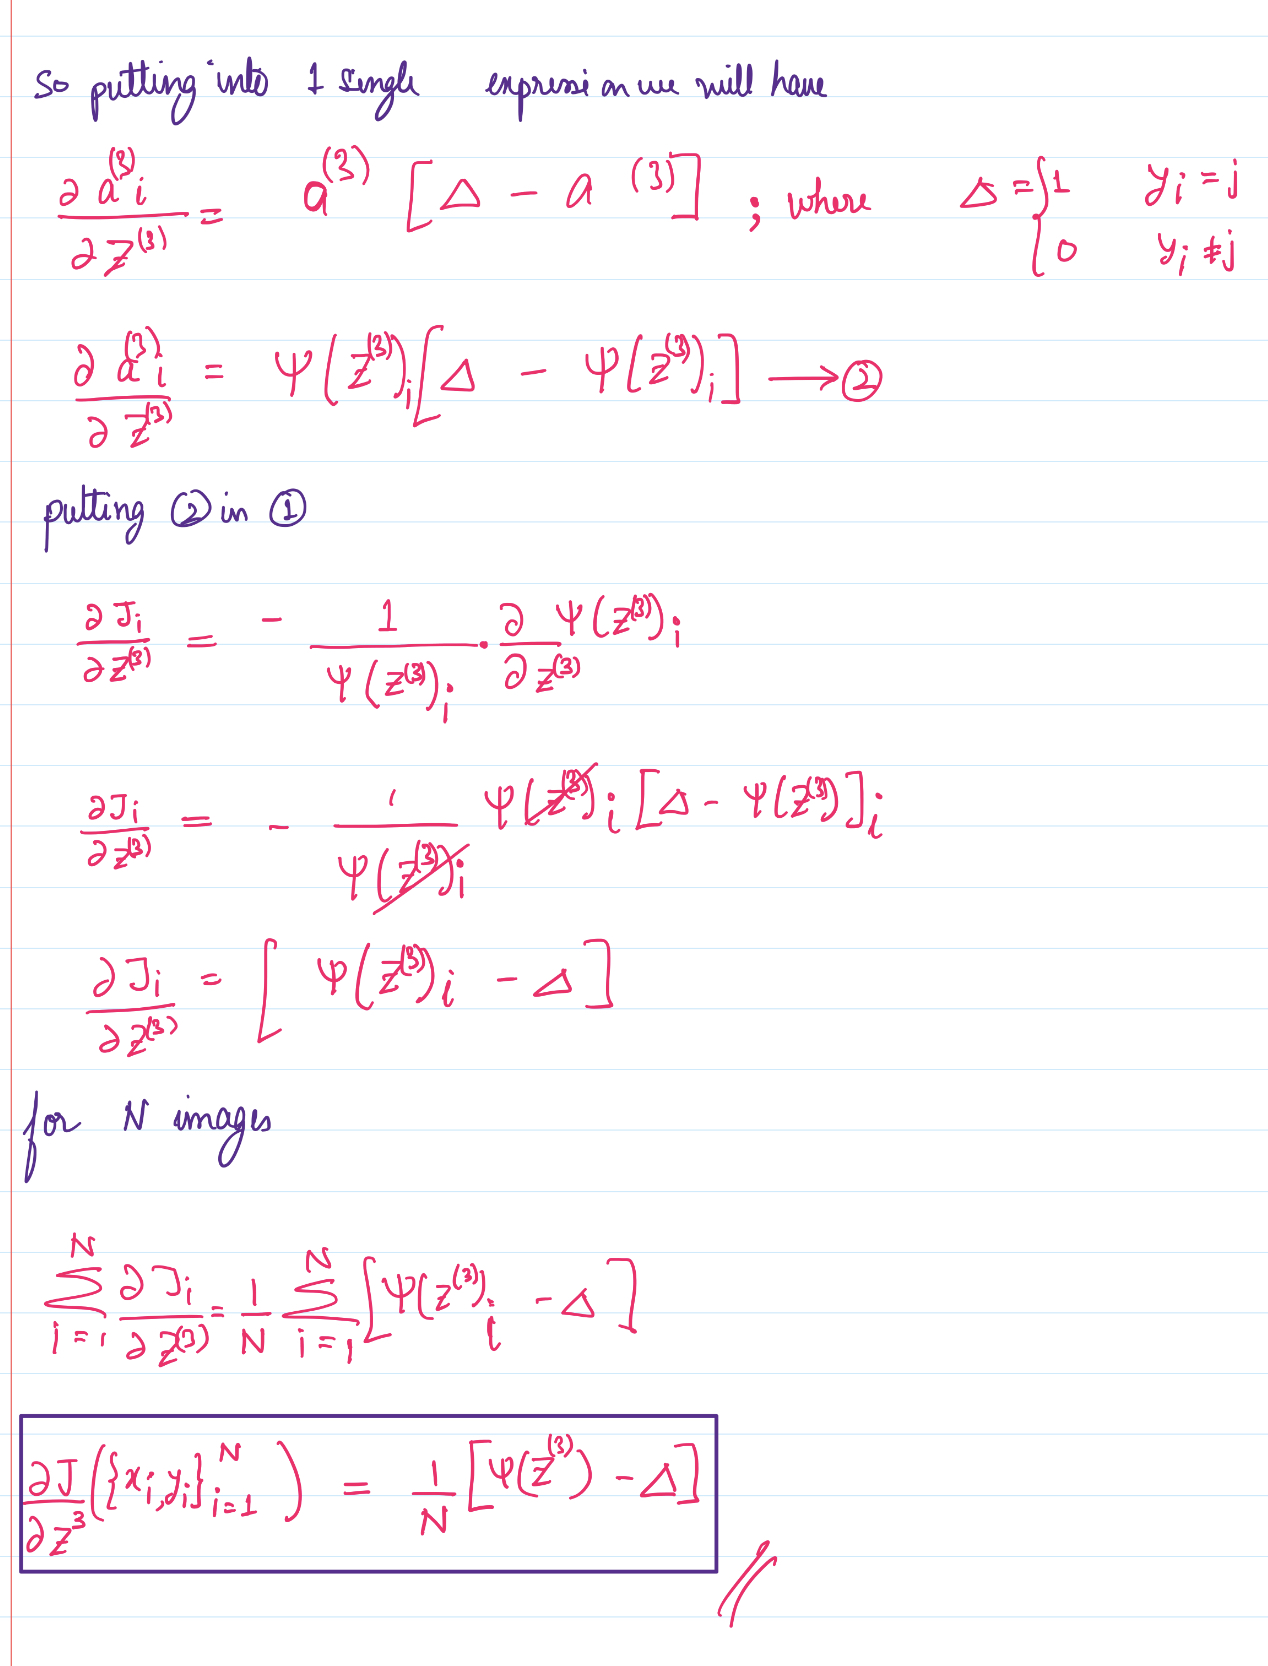 So putting into 1 single expression we will have
∂a⁽³⁾ᵢ / ∂z⁽³⁾ = a⁽³⁾ [Δ − a⁽³⁾] ; where Δ = { 1 yᵢ = j
0 yᵢ ≠ j
∂a⁽³⁾ᵢ / ∂z⁽³⁾ = Ψ(z⁽³⁾)ᵢ [Δ − Ψ(z⁽³⁾)ᵢ] ⟶ ②
putting ② in ①
∂Jᵢ / ∂z⁽³⁾ = − 1 / Ψ(z⁽³⁾)ᵢ · ∂Ψ(z⁽³⁾)ᵢ / ∂z⁽³⁾
∂Jᵢ / ∂z⁽³⁾ = − 1 / Ψ(z⁽³⁾)ᵢ Ψ(z⁽³⁾)ᵢ [Δ − Ψ(z⁽³⁾)]ᵢ
∂Jᵢ / ∂z⁽³⁾ = [Ψ(z⁽³⁾)ᵢ − Δ]
for N images
∑ᵢ₌₁ᴺ ∂Jᵢ / ∂z⁽³⁾ = 1/N ∑ᵢ₌₁ᴺ [Ψ(z⁽³⁾)ᵢ − Δ]
∂J / ∂z³ ({xᵢ, yᵢ}ᵢ₌₁ᴺ) = 1/N [Ψ(z⁽³⁾) − Δ]